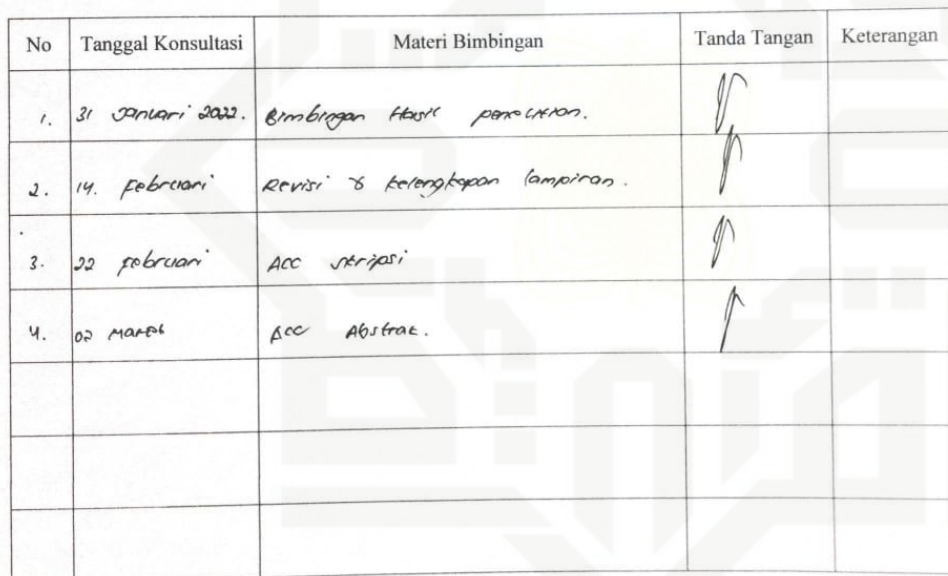 No Tanggal Konsultasi Materi Bimbingan Tanda Tangan Keterangan
1. 31 Januari 2022. Bimbingan Hasil penelitian.
2. 14. Februari Revisi & kelengkapan lampiran.
3. 22 Februari ACC skripsi
4. 02 Maret Acc Abstrak.